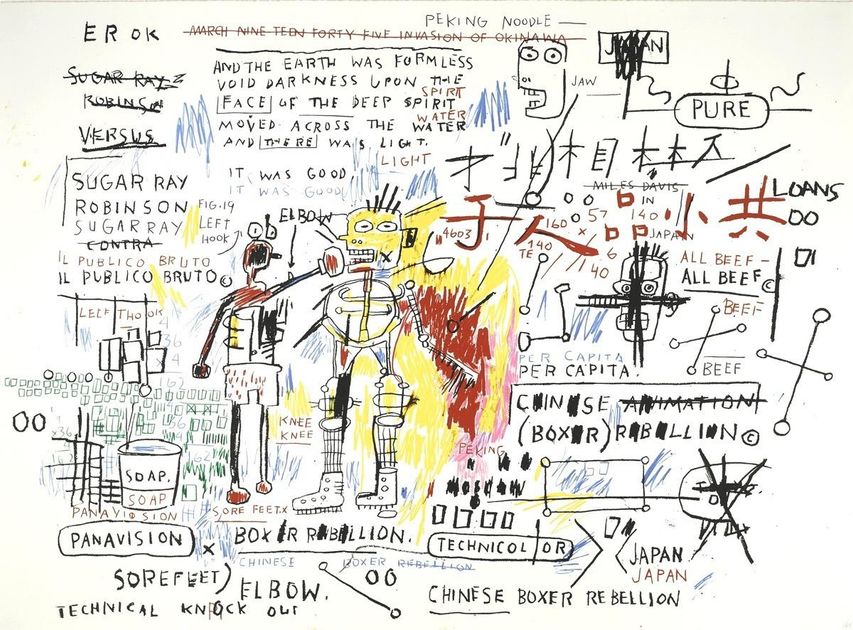 PEKING NOODLE
EROK
MARCH NINE TEEN FORTY FIVE INVASION OF OKINAWA
JAPAN
AND THE EARTH WAS FORMLESS
VOID DARKNESS UPON THE
SPIRIT
FACE OF THE DEEP SPIRIT
WATER
MOVED ACROSS THE WATER
AND THERE WAS LIGHT.
LIGHT
IT WAS GOOD
IT WAS GOOD
SUGAR RAY
ROBINSON
VERSUS
JAW
PURE
SUGAR RAY
ROBINSON
SUGAR RAY
CONTRA
IL PUBLICO BRUTO
IL PUBLICO BRUTO©
FIG.19
LEFT
HOOK
ELBOW
MILES DAVIS
IN
JAPAN
LOANS
00
57
140
160
x 6
"4603
140
TE
140
ALL BEEF-
ALL BEEF©
BEEF
BEEF
PER CAPITA
PER CAPITA.
CHINESE ANIMATION
(BOXER) REBELLION©
KNEE
KNEE
PEKING
MOSCOW
00
SOAP.
SOAP
PANAVISION
SORE FEET.X
PANAVISION X BOXER REBELLION.
CHINESE BOXER REBELLION
TECHNICOLOR
JAPAN
JAPAN
SOREFEET)
ELBOW.
00
TECHNICAL KNOCK OUT
CHINESE BOXER REBELLION